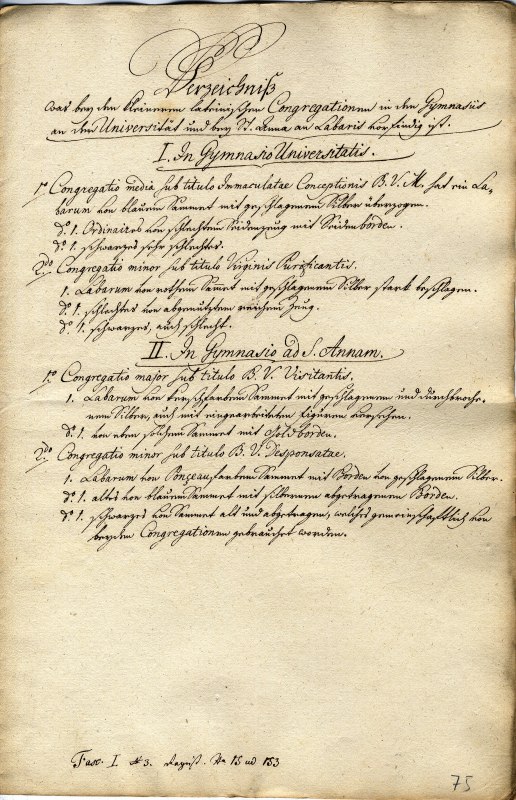 Verzeichniß
was bey den kleineren lateinischen Congregationen in den Gymnasiis
an der Universität und bey St. Anna an Labaris vorfindig ist.
I. In Gymnasio Universitatis.
1º Congregatio media sub titulo Immaculatae Conceptionis B. V. M. hat ein La-
barum von blauem Sammet mit geschlagenem Silber überzogen.
dº. 1. Ordinaires von schlechtem Seidenzeug mit Seidenborden.
dº. 1. schwarzes sehr schlechtes.
2do Congregatio minor sub titulo Virginis Purificantis.
1. Labarum von rothem Samet mit geschlagenem Silber stark beschlagen.
dº. 1. schlechtes von abgenutztem reichem Zeug.
dº. 1. schwarzes, auch schlecht.
II. In Gymnasio ad S. Annam.
1º. Congregatio major sub titulo B. V. Visitantis.
1. Labarum von Sammet mit geschlagenem und durchbroche-
nem Silber, auch mit eingearbeiteten Figuren versehen.
dº. 1. von eben solchem Sammet mit Goldborden.
2do Congregatio minor sub titulo B. V. Desponsatae.
1. Labarum von Ponceaufarbem Sammet mit Borden von geschlagenem Silber.
dº. 1. altes von blauem Sammet mit silbernen abgetragenen Borden.
dº. 1. schwarzes von Sammet alt und abgetragen, welches gemeinschaftlich von
beyden Congregationen gebrauchet worden.
Fasc. I # 3. No 15 ad 153
75